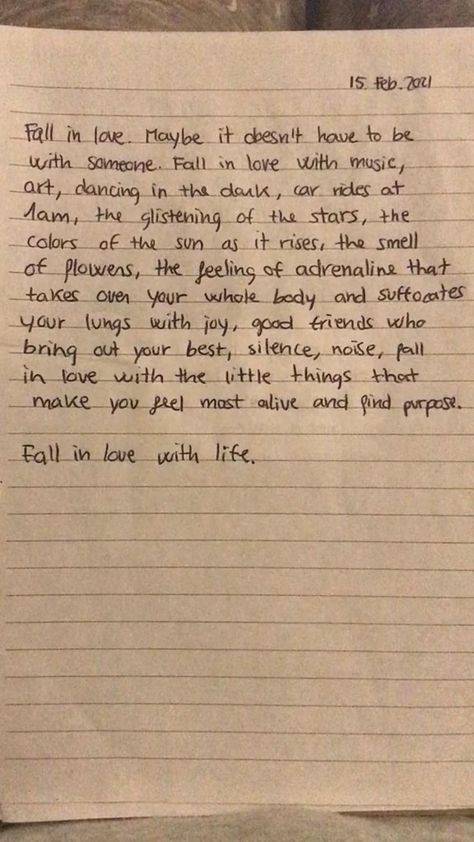 15 Feb. 2021
Fall in love. Maybe it doesn't have to be
with someone. Fall in love with music,
art, dancing in the dark, car rides at
1am, the glistening of the stars, the
colors of the sun as it rises, the smell
of flowers, the feeling of adrenaline that
takes over your whole body and suffocates
your lungs with joy, good friends who
bring out your best, silence, noise, fall
in love with the little things that
make you feel most alive and find purpose.
Fall in love with life.